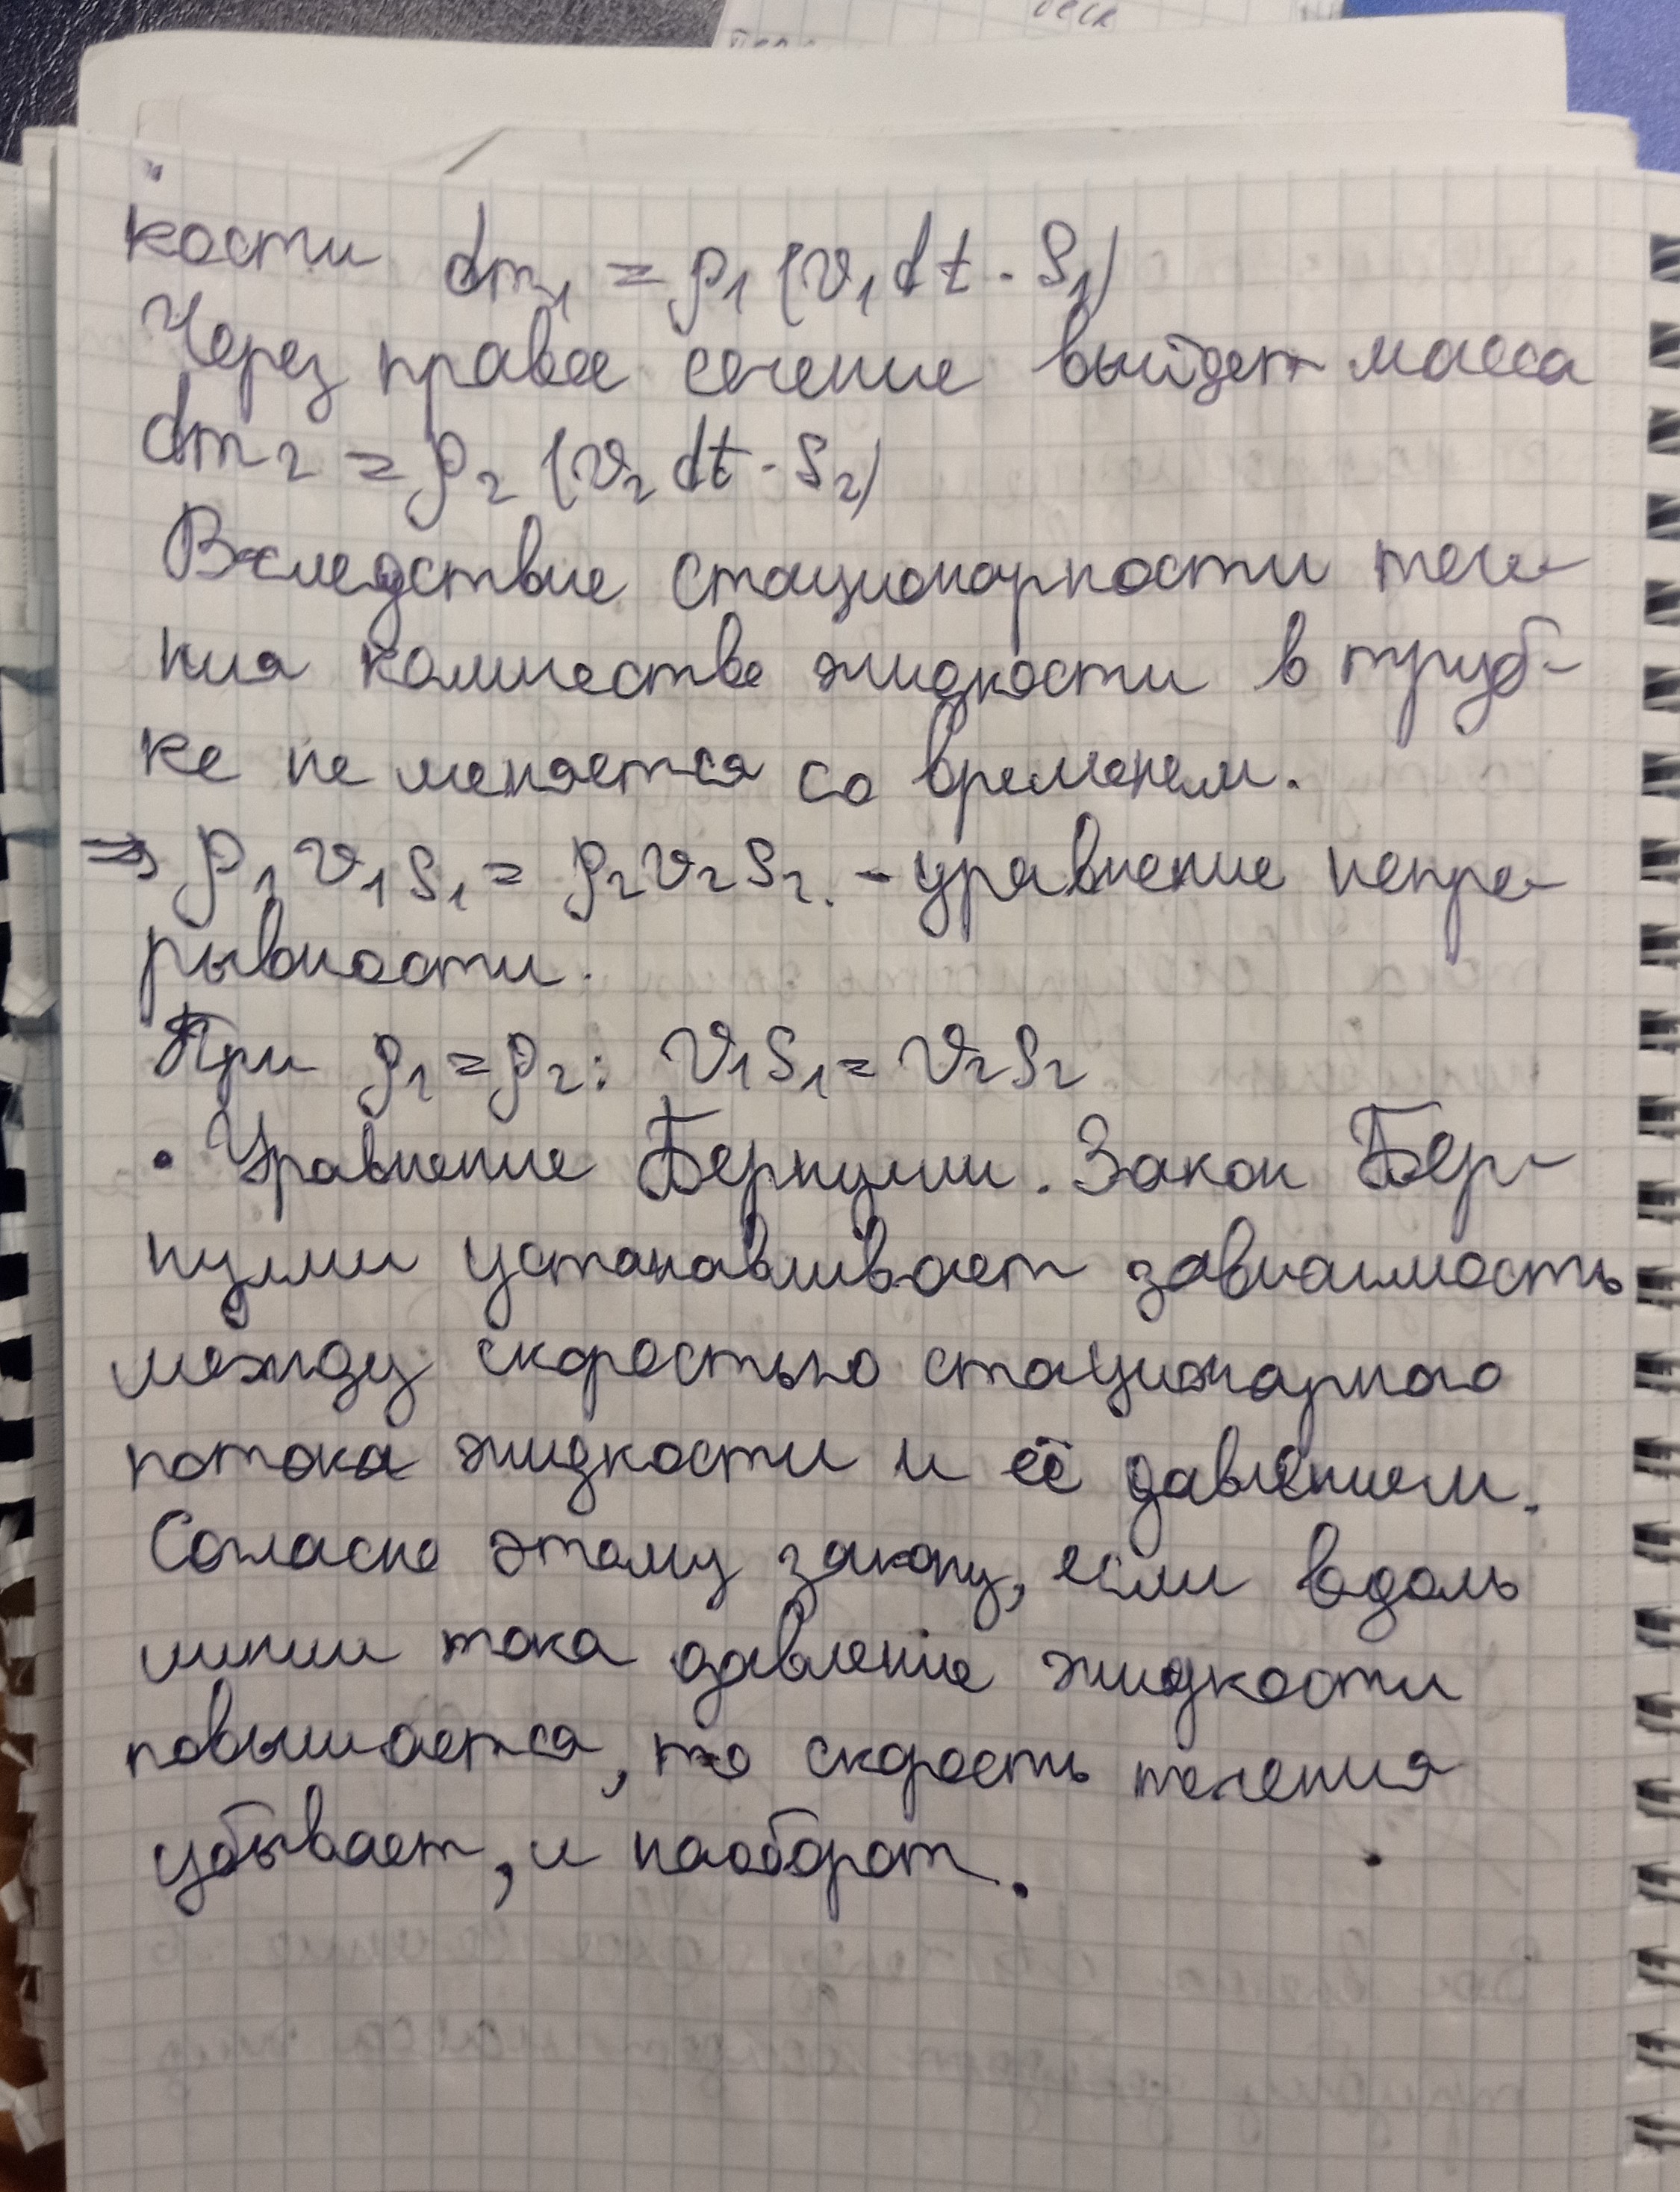 кости dm₁ = ρ₁ (v₁dt · S₁)
Через правое сечение выйдет масса
dm₂ = ρ₂ (v₂ dt · S₂)
Вследствие стационарности тече-
ния количество жидкости в труб-
ке не меняется со временем.
⇒ ρ₁v₁S₁ = ρ₂v₂S₂. - уравнение непре-
рывности.
При ρ₁ = ρ₂: v₁S₁ = v₂S₂
• Уравнение Бернулли. Закон Бер-
нулли устанавливает зависимость
между скоростью стационарного
потока жидкости и её давлением.
Согласно этому закону, если вдоль
линии тока давление жидкости
повышается, то скорость течения
убывает, и наоборот.